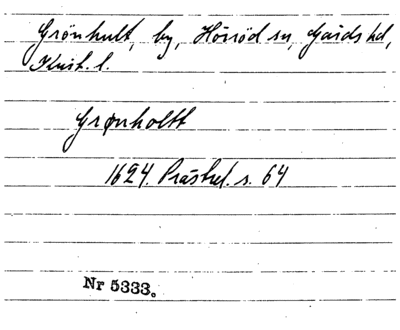 Grönhult, by, Hörröd sn, Gärds hd,
Krist. l.
Grønholtt
1624. Prästrel. s. 64
Nr 5333.